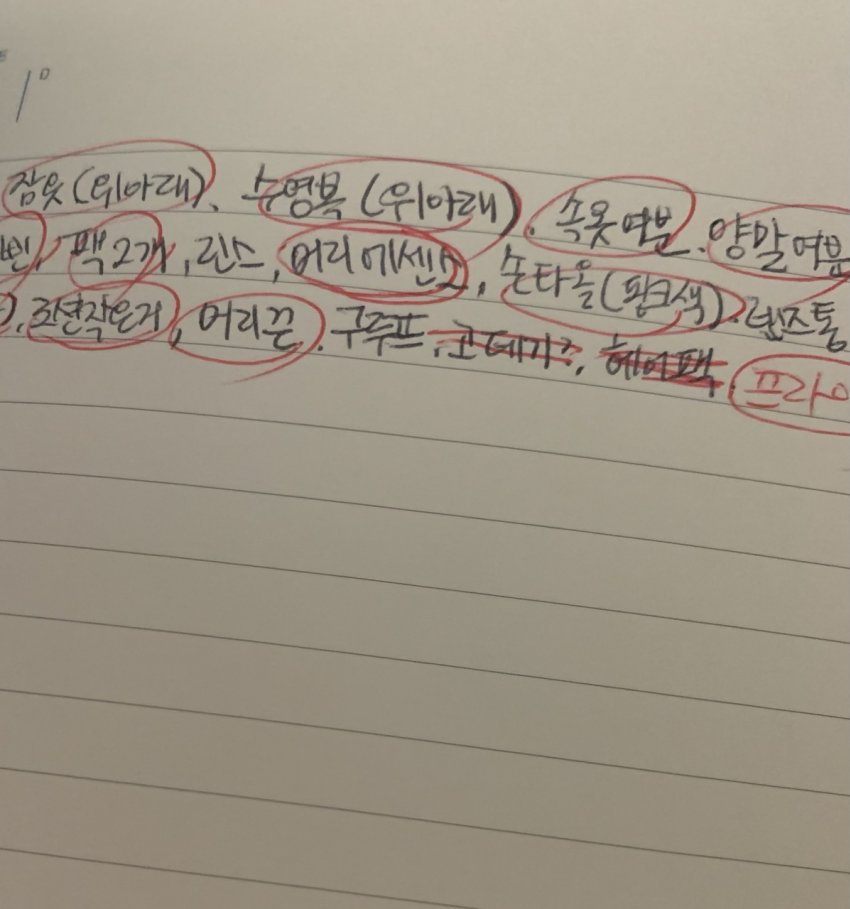 1°
잠옷(위아래), 수영복(위아래). 속옷여분. 양말여분
빈, 팩2개, 린스, 머리에센스, 손타올(핑크색). 렌즈통
조명작은거, 머리끈. 구루프, 고데기?, 헤어팩. 프라이